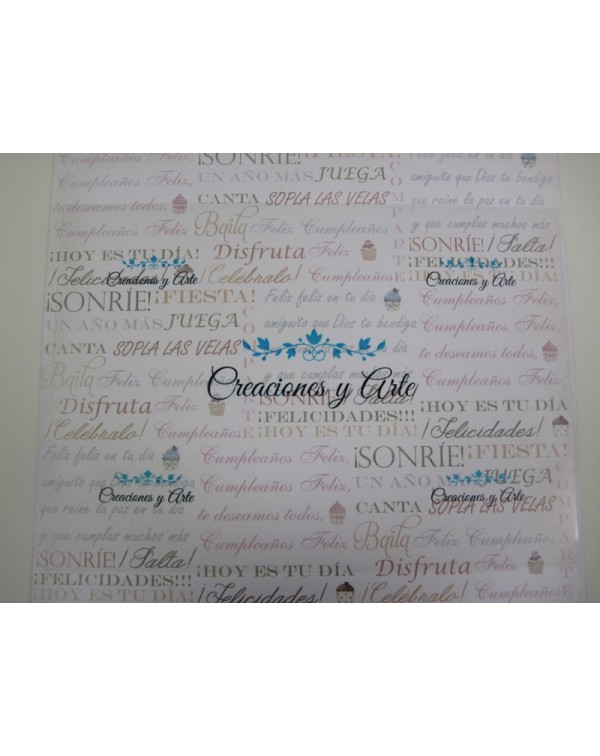 Cumpleaños Feliz, ¡SONRÍE! ¡FIESTA! Feliz feliz en tu día
Cumpleaños Feliz, UN AÑO MÁS JUEGA amiguito que Dios te bendiga
te deseamos todos, CANTA SOPLA LAS VELAS que reine la paz en tu día
Cumpleaños Feliz Baila Feliz Cumpleaños y que cumplas muchos más
¡HOY ES TU DÍA! Disfruta Feliz ¡SONRÍE! ¡Salta!
¡Felicidades! ¡Celébralo! Cumpleaños ¡FELICIDADES!!!
¡HOY ES TU DÍA!
COMPARTE
Creaciones y Arte
Creaciones y Arte
¡SONRÍE! ¡FIESTA! Feliz feliz en tu día Cumpleaños Feliz,
UN AÑO MÁS JUEGA amiguito que Dios te bendiga Cumpleaños Feliz,
CANTA SOPLA LAS VELAS día te deseamos todos,
Baila Feliz Cumpleaños y que cumplas muchos más Cumpleaños Feliz
Creaciones y Arte
Disfruta Feliz ¡SONRÍE! ¡Salta! ¡HOY ES TU DÍA
¡Celébralo! Cumpleaños ¡FELICIDADES!!! ¡Felicidades!
¡HOY ES TU DÍA!
Feliz feliz en tu día Cumpleaños Feliz, ¡SONRÍE! ¡FIESTA!
amiguito que Dios te bendiga Cumpleaños Feliz, UN AÑO MÁS JUEGA
Creaciones y Arte
Creaciones y Arte
que reine la paz en tu día te deseamos todos, CANTA SOPLA LAS VELAS
y que cumplas muchos más Cumpleaños Feliz Baila Feliz Cumpleaños
¡SONRÍE! ¡Salta! ¡HOY ES TU DÍA Disfruta Feliz
¡FELICIDADES!!! ¡Felicidades! ¡Celébralo! Cumpleaños
¡HOY ES TU DÍA!